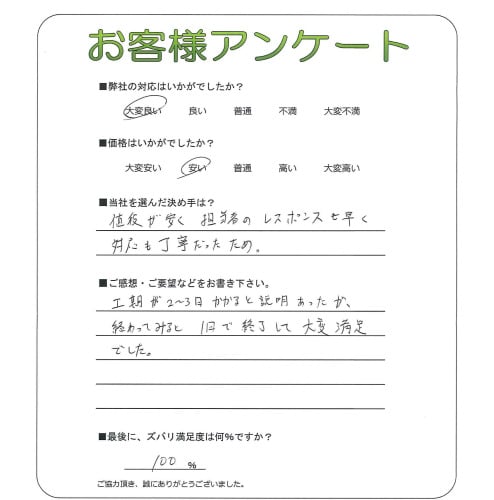 お客様アンケート
■弊社の対応はいかがでしたか？
大変良い 良い 普通 不満 大変不満
■価格はいかがでしたか？
大変安い 安い 普通 高い 大変高い
■当社を選んだ決め手は？
値段が安く 担当者のレスポンスも早く
対応も丁寧だったため。
■ご感想・ご要望などをお書き下さい。
工期が2〜3日かかると説明あったが、
終わってみると 1日で終了して大変満足
でした。
■最後に、ズバリ満足度は何%ですか？
100 %
ご協力頂き、誠にありがとうございました。